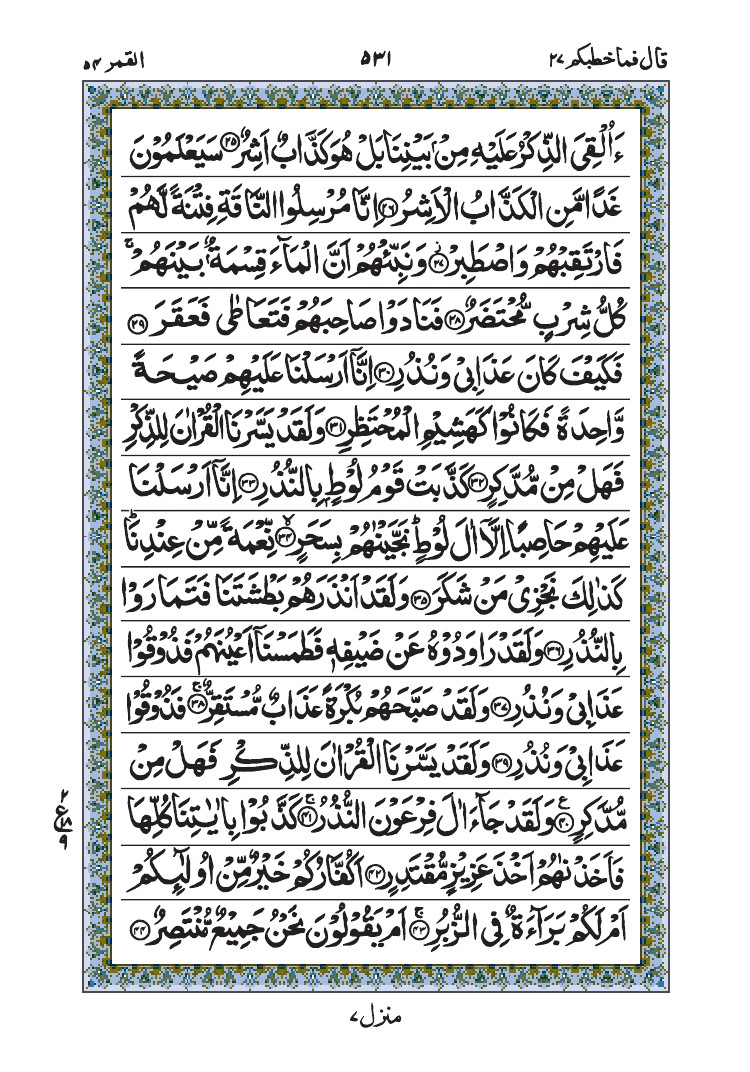 قال فما خطبکم ۲۷ ۵۳۱ القمر ۵۴
ءَاُلْقِیَ الذِّكْرُ عَلَیْهِ مِنْۢ بَیْنِنَا بَلْ هُوَ كَذَّابٌ اَشِرٌ ۝۲۵ سَیَعْلَمُوْنَ
غَدًا مَّنِ الْكَذَّابُ الْاَشِرُ ۝۲۶ اِنَّا مُرْسِلُوا النَّاقَةِ فِتْنَةً لَّهُمْ
فَارْتَقِبْهُمْ وَاصْطَبِرْ ۝۲۷ وَنَبِّئْهُمْ اَنَّ الْمَآءَ قِسْمَةٌۢ بَیْنَهُمْ ۚ
كُلُّ شِرْبٍ مُّحْتَضَرٌ ۝۲۸ فَنَادَوْا صَاحِبَهُمْ فَتَعَاطٰی فَعَقَرَ ۝۲۹
فَكَیْفَ كَانَ عَذَابِیْ وَنُذُرِ ۝۳۰ اِنَّاۤ اَرْسَلْنَا عَلَیْهِمْ صَیْحَةً
وَّاحِدَةً فَكَانُوْا كَهَشِیْمِ الْمُحْتَظِرِ ۝۳۱ وَلَقَدْ یَسَّرْنَا الْقُرْاٰنَ لِلذِّكْرِ
فَهَلْ مِنْ مُّدَّكِرٍ ۝۳۲ كَذَّبَتْ قَوْمُ لُوْطٍۭ بِالنُّذُرِ ۝۳۳ اِنَّاۤ اَرْسَلْنَا
عَلَیْهِمْ حَاصِبًا اِلَّاۤ اٰلَ لُوْطٍ ؕ نَجَّیْنٰهُمْ بِسَحَرٍ ۝۳۴ۙ نِّعْمَةً مِّنْ عِنْدِنَا ؕ
كَذٰلِكَ نَجْزِیْ مَنْ شَكَرَ ۝۳۵ وَلَقَدْ اَنْذَرَهُمْ بَطْشَتَنَا فَتَمَارَوْا
بِالنُّذُرِ ۝۳۶ وَلَقَدْ رَاوَدُوْهُ عَنْ ضَیْفِهٖ فَطَمَسْنَاۤ اَعْیُنَهُمْ فَذُوْقُوْا
عَذَابِیْ وَنُذُرِ ۝۳۷ وَلَقَدْ صَبَّحَهُمْ بُكْرَةً عَذَابٌ مُّسْتَقِرٌّ ۝۳۸ۚ فَذُوْقُوْا
عَذَابِیْ وَنُذُرِ ۝۳۹ وَلَقَدْ یَسَّرْنَا الْقُرْاٰنَ لِلذِّكْرِ فَهَلْ مِنْ
مُّدَّكِرٍ ۝۴۰ۧ وَلَقَدْ جَآءَ اٰلَ فِرْعَوْنَ النُّذُرُ ۝۴۱ۚ كَذَّبُوْا بِاٰیٰتِنَا كُلِّهَا
۲ ع ۱۸ ۹
فَاَخَذْنٰهُمْ اَخْذَ عَزِیْزٍ مُّقْتَدِرٍ ۝۴۲ اَكُفَّارُكُمْ خَیْرٌ مِّنْ اُولٰٓئِكُمْ
اَمْ لَكُمْ بَرَآءَةٌ فِی الزُّبُرِ ۝۴۳ۚ اَمْ یَقُوْلُوْنَ نَحْنُ جَمِیْعٌ مُّنْتَصِرٌ ۝۴۴
منزل ۷